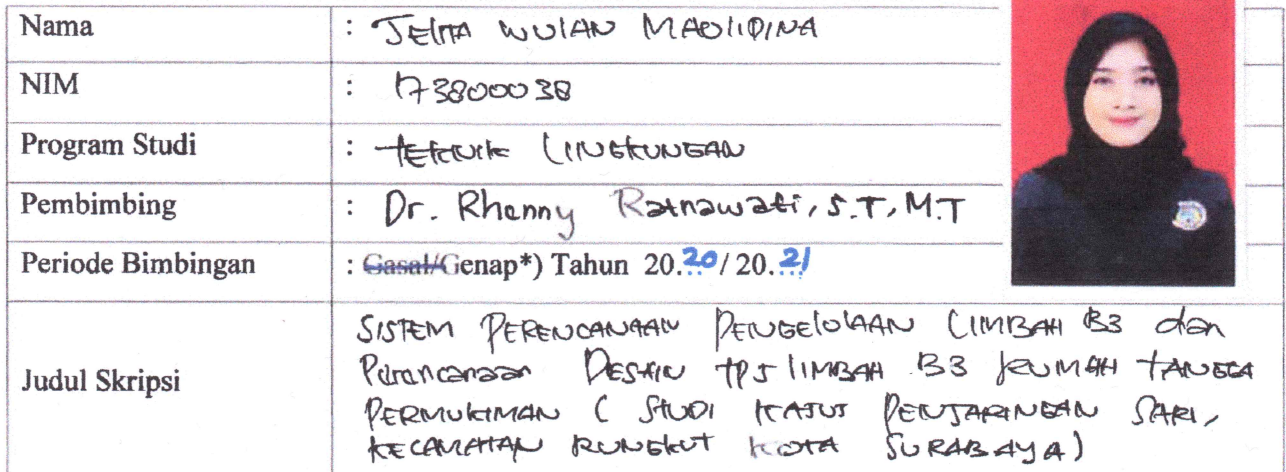 Nama : Jelita Wulan Maolidina
NIM : 173800038
Program Studi : Teknik Lingkungan
Pembimbing : Dr. Rhenny Ratnawati, S.T, M.T
Periode Bimbingan : Gasal/Genap*) Tahun 20.20/20.21
Judul Skripsi
SISTEM PERENCANAAN PENGELOLAAN LIMBAH B3 dan
Perancanaan DESAIN TPS LIMBAH B3 RUMAH TANGGA
PERMUKIMAN ( STUDI KASUS PENJARINGAN SARI,
KECAMATAN RUNGKUT KOTA SURABAYA)